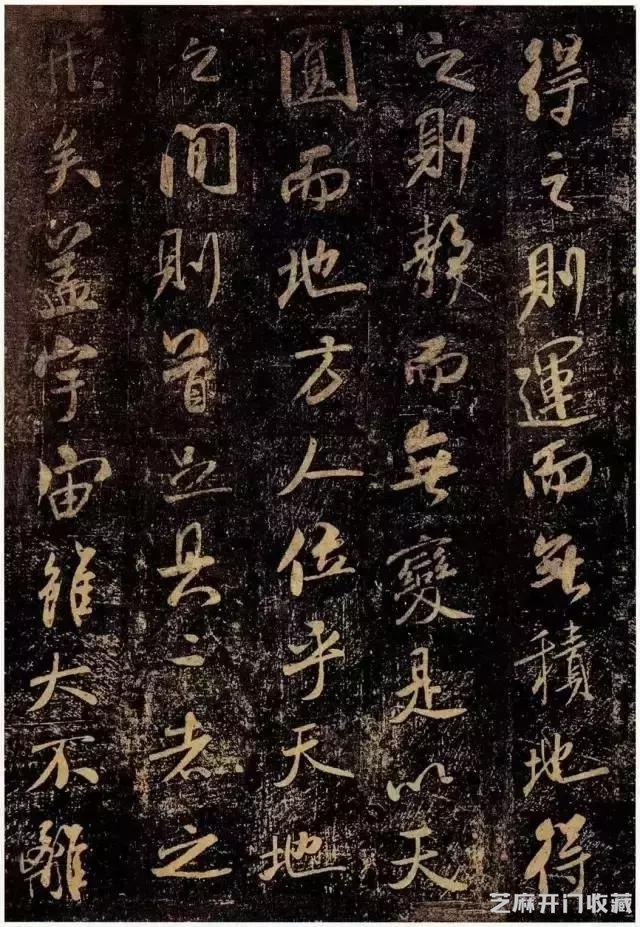 得之則運而無積地得
之則靜而無變是以天
圓而地方人位乎天地
之間則首足具二者之
形矣蓋宇宙雖大不離
芝麻开门收藏